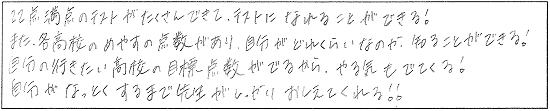 22点満点のテストがたくさんできて、テストになれることができる!
また、各高校のめやすの点数があり、自分がどれくらいなのか、知ることができる!
自分の行きたい高校の目標点数がでるから、やる気もでてくる!
自分がなっとくするまで先生がしっかりおしえてくれる!!